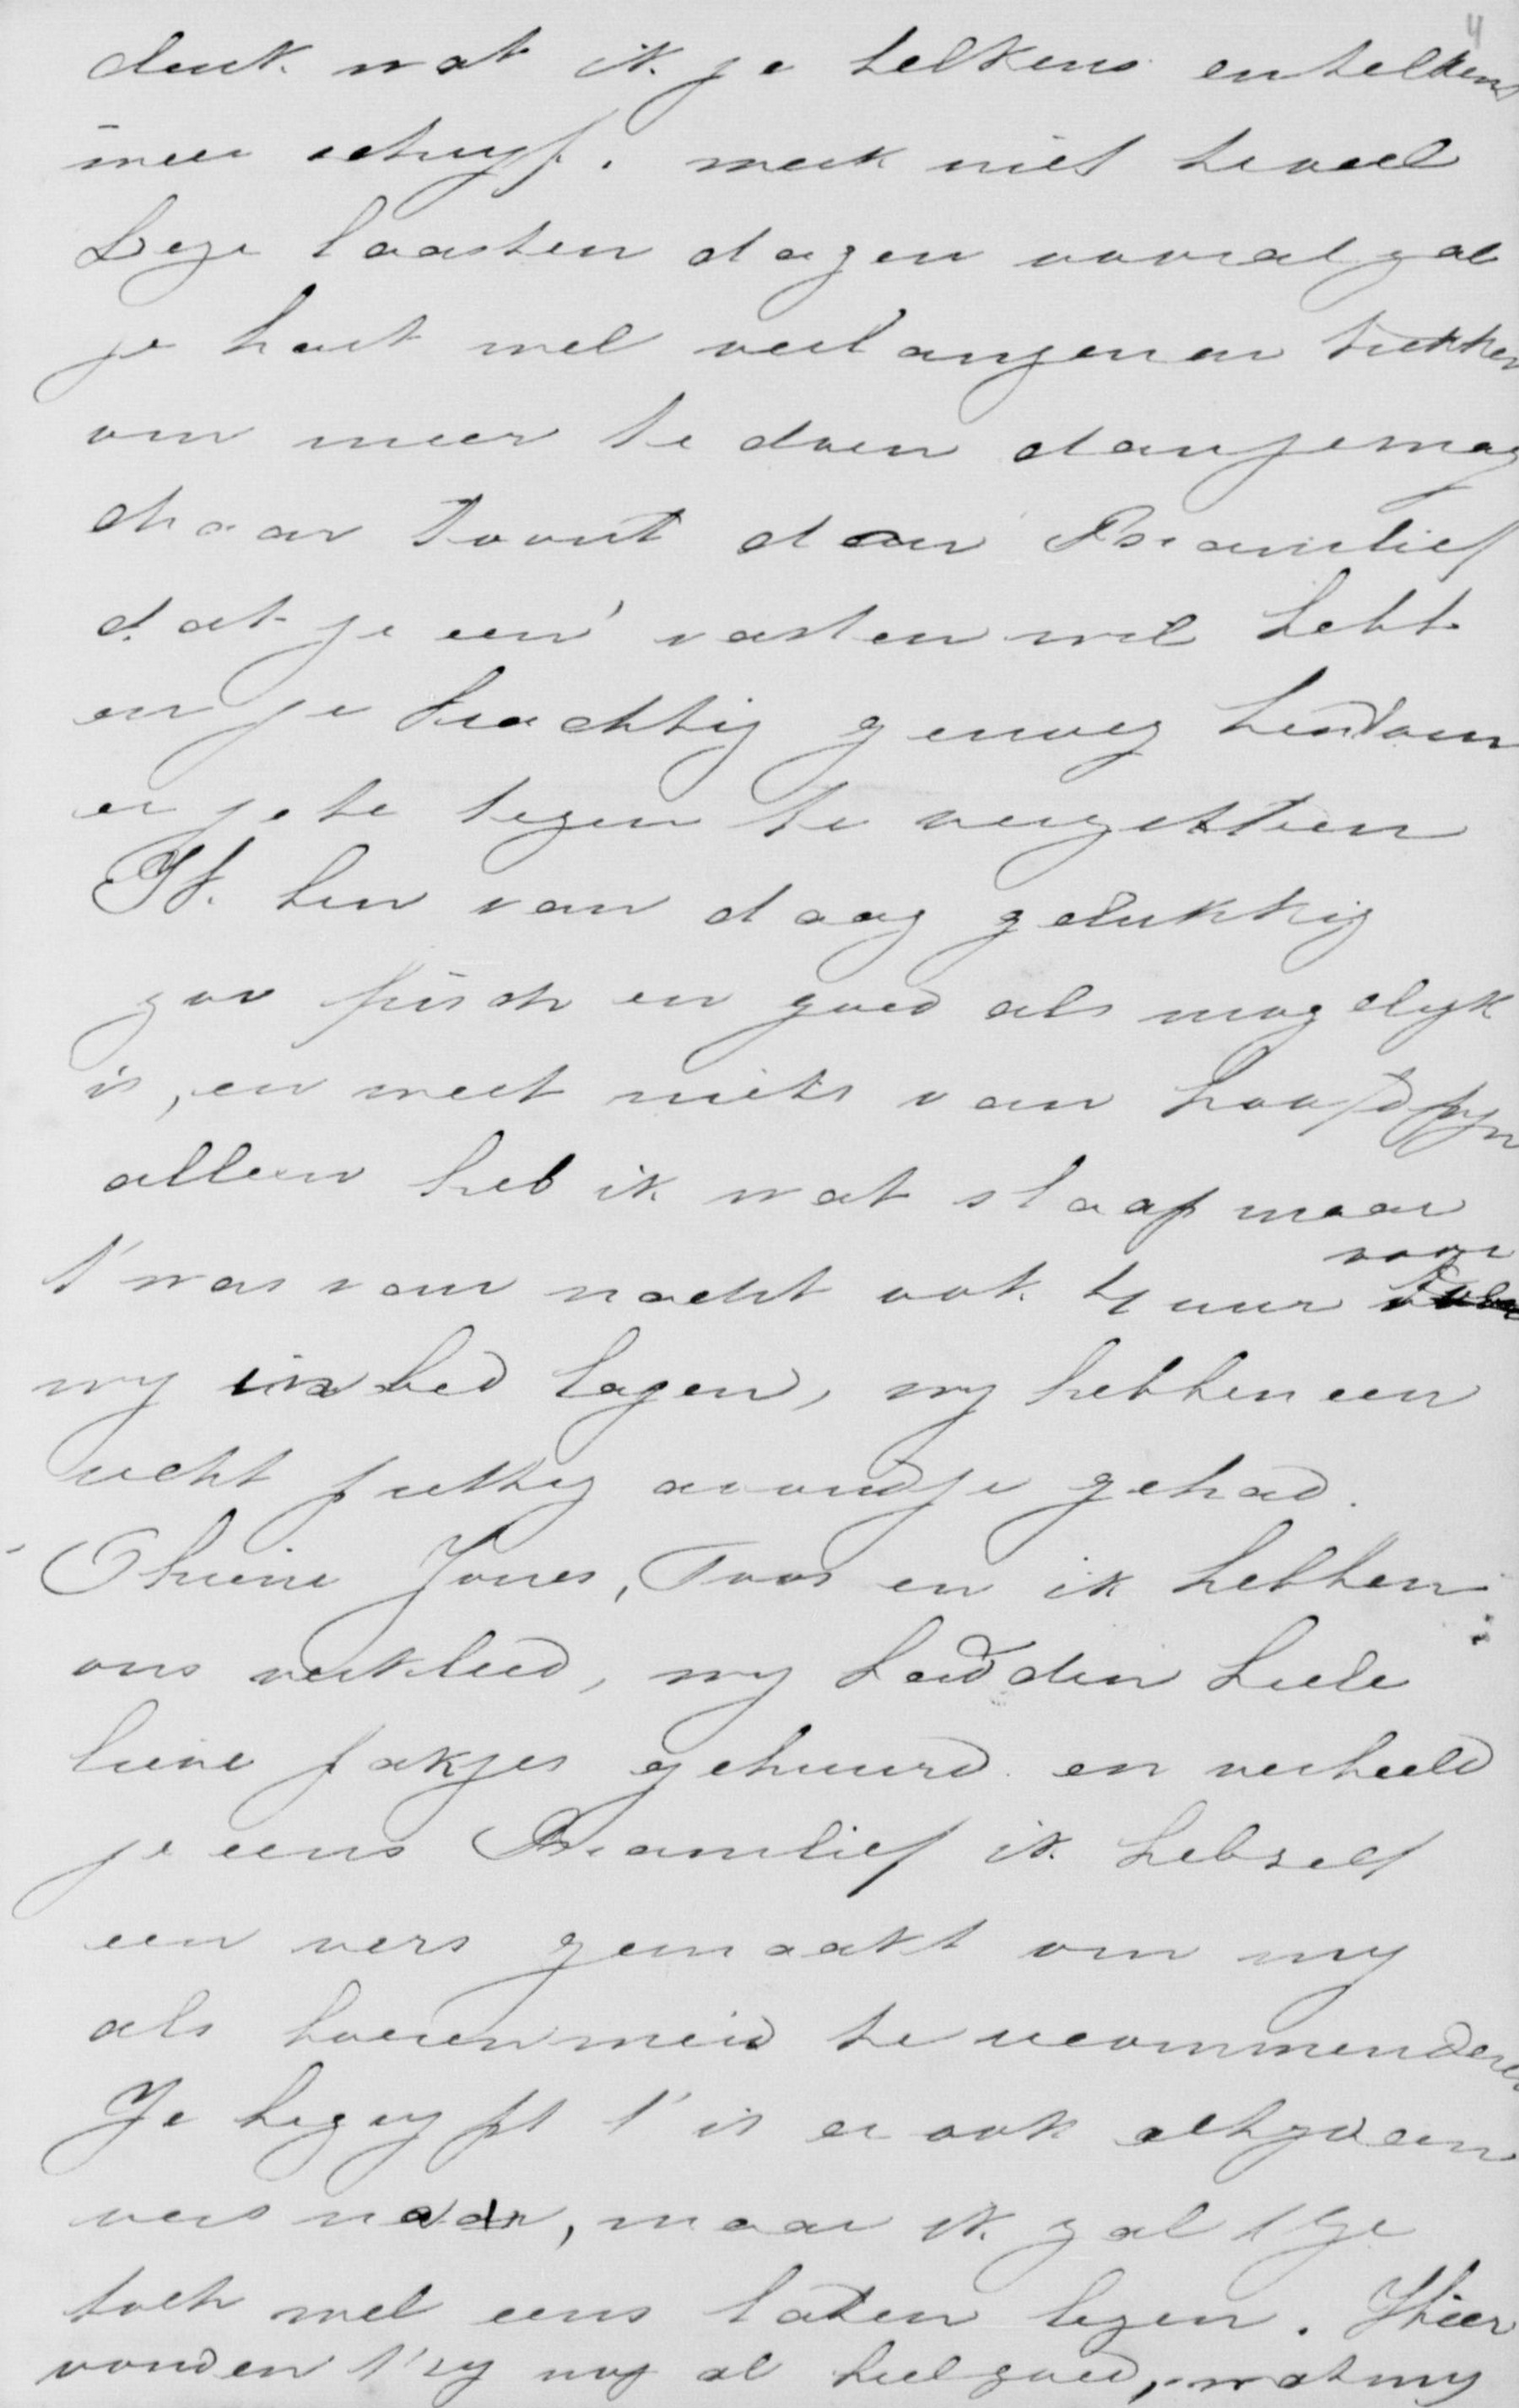 4
denk wat ik je telkens en telkens
weer schryf. werk niet te veel
Deze laasten dagen vooral zal
je hart wel verlangen en trekken
om meer te doen dan je mag
maar toont dan Bramlief
dat je een' vasten wil hebt
en je krachtig genoeg bent om
er je te tegen te verzetten
Ik ben van daag gelukkig
zoo frisch en goed als mogelyk
is, en weet niets van hoofdpyn
alleen heb ik wat slaap maar
t' was van nacht ook 4 uur voor
wy in bed lagen, wy hebben een
recht prettig avondje gehad.
Threne Jones, Toos en ik hebben
ons verkleed, wy hadden heele
lieve pakjes gehuurd en verbeeld
je eens Bramlief ik heb zelf
een vers gemaakt om my
als boerenmeid te recommenderen
Je begrypt t' is er ook een
vers naar, maar ik zal t je
toch wel eens laten lezen. Hier
vonden t' zy nog al heel goed, wat my